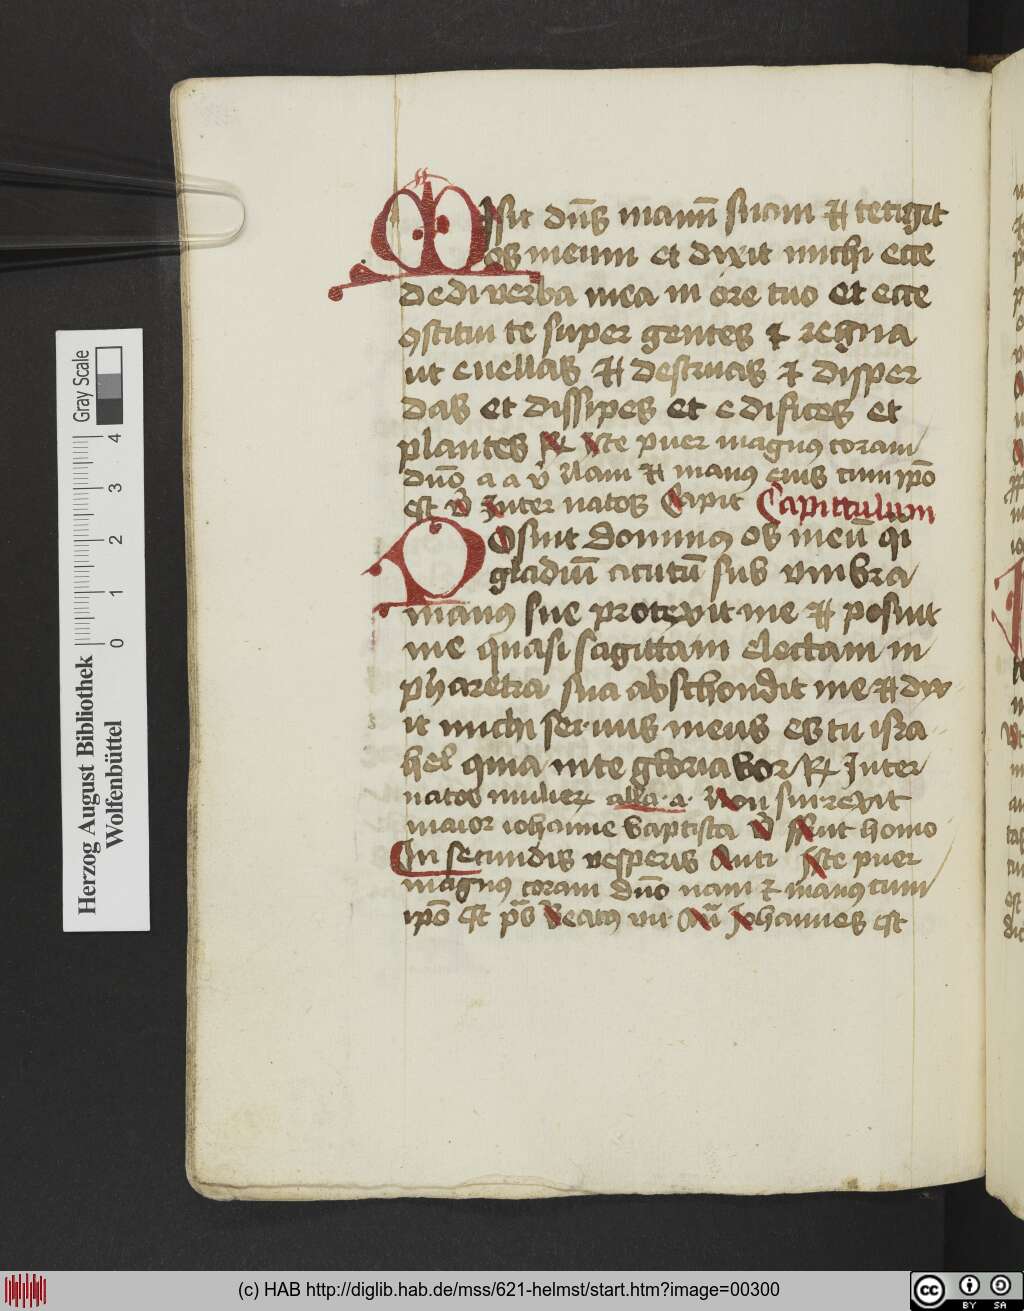 Misit dn̄s manū suam ⁊ tetigit
os meum et dixit michi ecce
dedi verba mea in ore tuo et ecce
ꝯstitui te super gentes ⁊ regna
ut evellas ⁊ destruas ⁊ disper
das et dissipes et edifices et
plantes ℟ Iste puer magnꝰ coram
dn̄o a a v̄ Nam ⁊ manꝰ eius cum ip̄o
est v̄ Inter natos Capit Capittulum
Posuit dominꝰ os meū qͥ
gladiū acutū sub vmbra
manꝰ sue protexit me ⁊ posuit
me quasi sagittam electam in
pharetra sua abschondit me ⁊ dix
it michi servus meus es tu isra
hel quia in te gloriabor ℟ Inter
natos mulieꝝ alla a Non surrexit
maior iohanne baptista v̄ ffuit homo
In secundis vesperis Anti Iste puer
magnꝰ coram dn̄o nam ⁊ manꝰ cum
ip̄o est p̄s Beatꝰ vir An̄ Johannes est
Herzog August Bibliothek
Wolfenbüttel
0 1 2 3 4
Gray Scale
(c) HAB http://diglib.hab.de/mss/621-helmst/start.htm?image=00300
cc BY SA